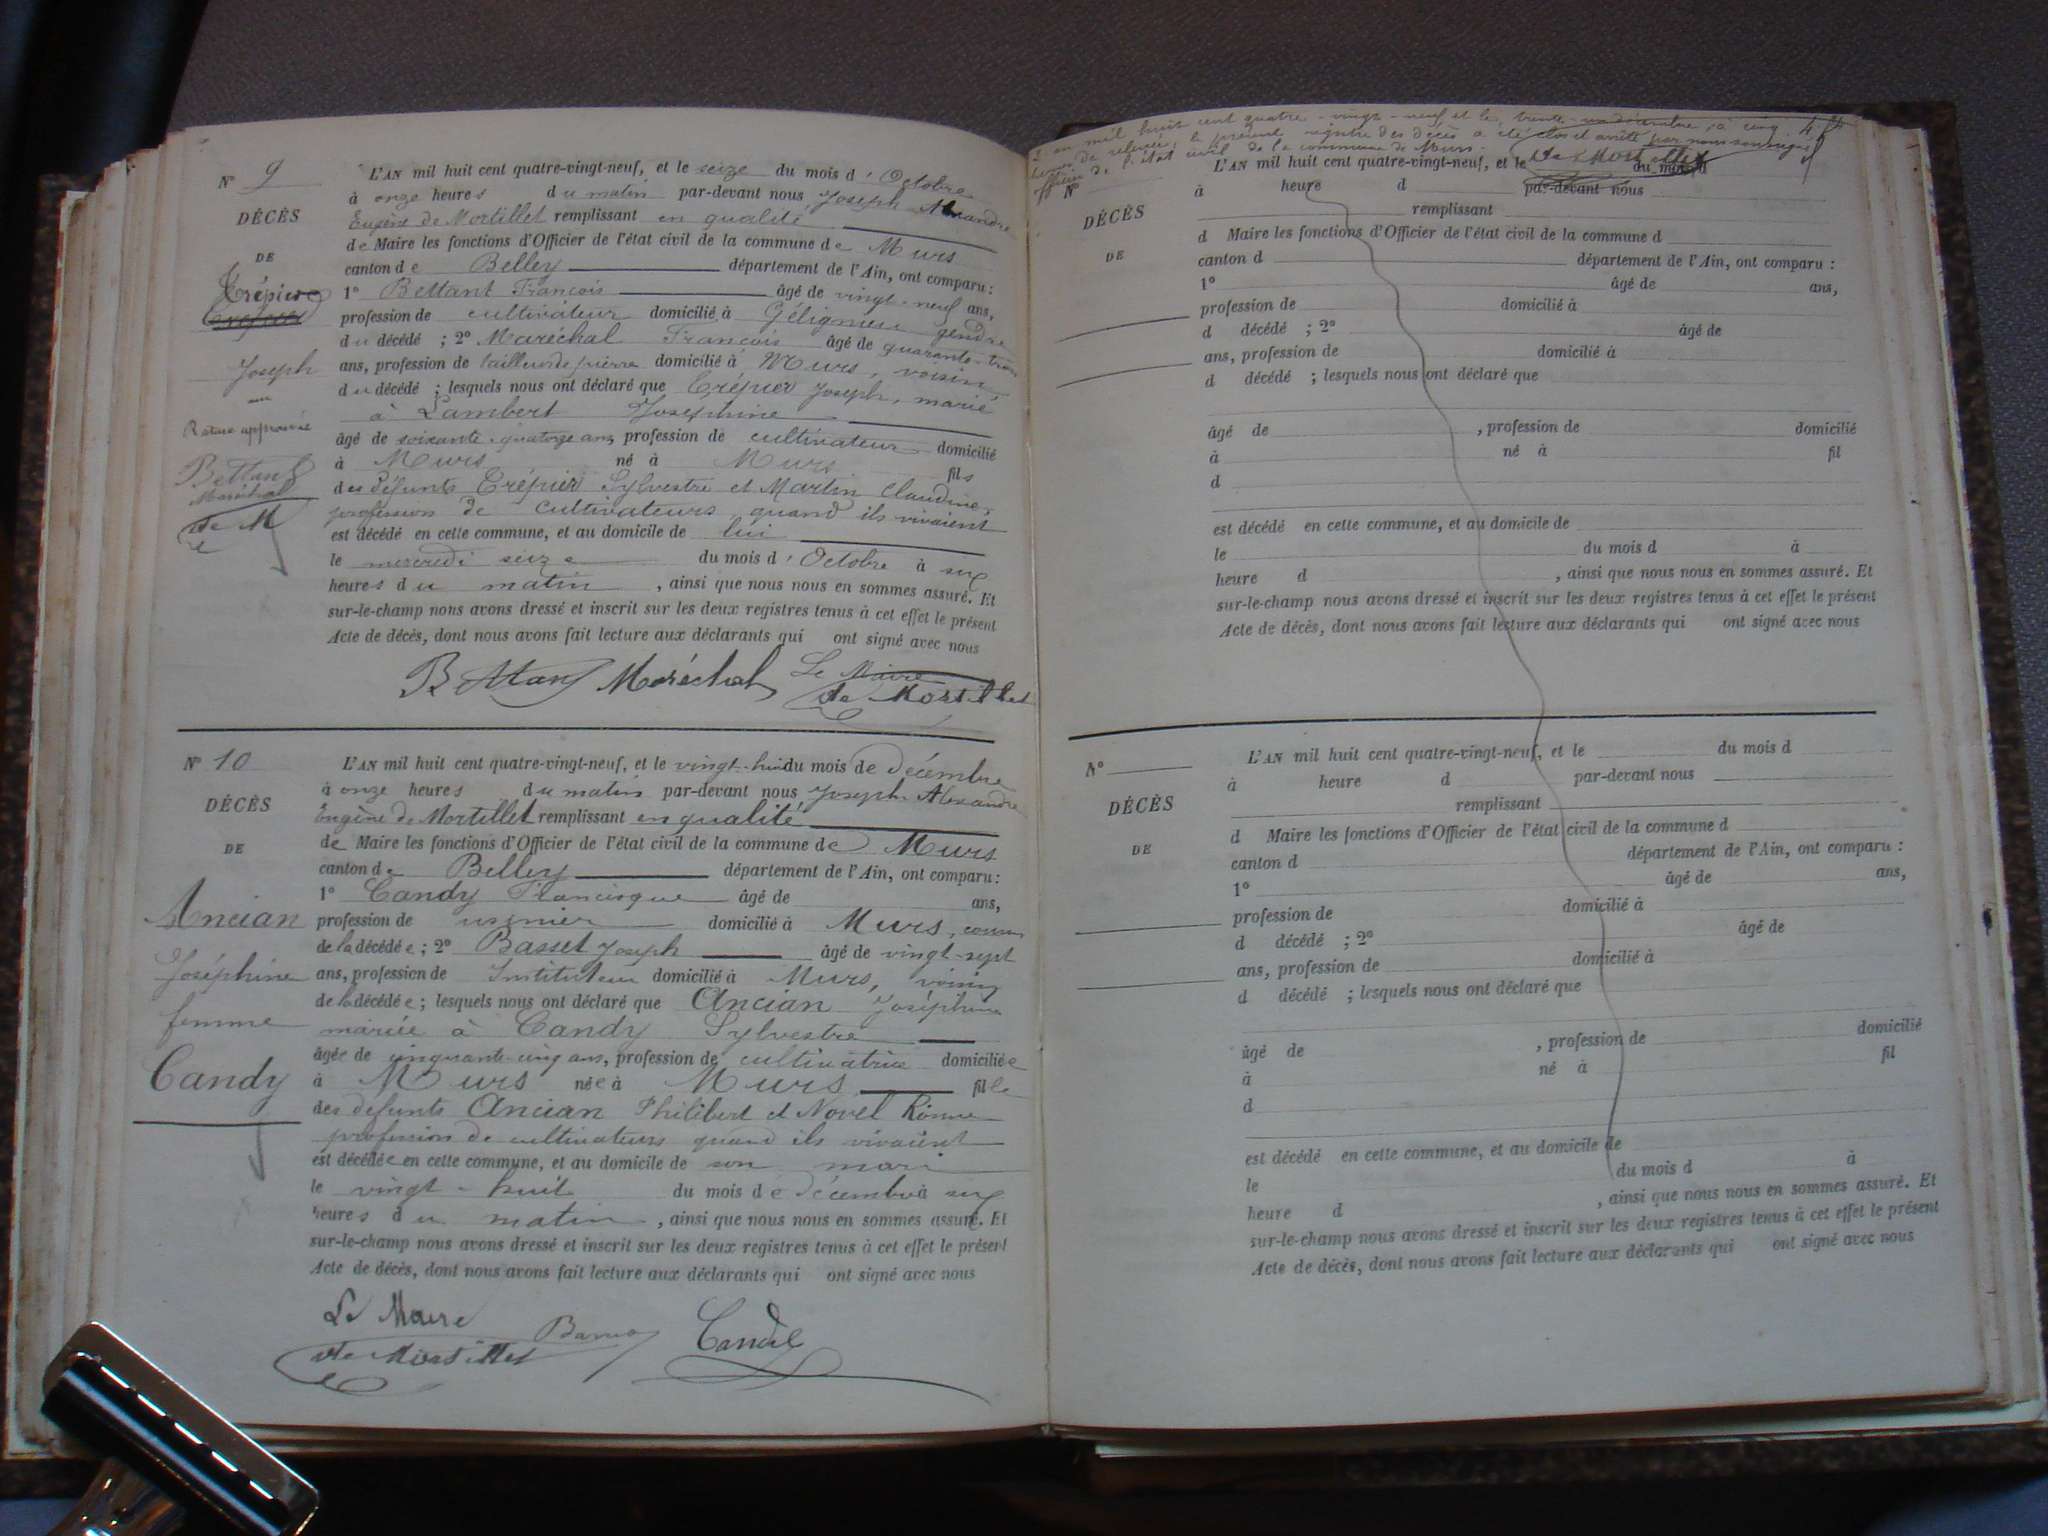 N° 9
DÉCÈS
DE
Trépier
Joseph
Rature approuvée
Bettant
Maréchal
de M
L'AN mil huit cent quatre-vingt-neuf, et le seize du mois d'Octobre
à onze heures du matin par-devant nous Joseph Alexandre
Eugène de Mortillet remplissant en qualité
de Maire les fonctions d'Officier de l'état civil de la commune de Murs
canton de Belley département de l'Ain, ont comparu :
1° Bettant François âgé de vingt-neuf ans,
profession de cultivateur domicilié à Gélignieu gendre
du décédé ; 2° Maréchal François âgé de quarante-trois
ans, profession de tailleur de pierre domicilié à Murs, voisin
du décédé ; lesquels nous ont déclaré que Trépier Joseph, marié
à Lambert Josephine
âgé de soixante-quatorze ans, profession de cultivateur domicilié
à Murs né à Murs fils
des défunts Trépier Sylvestre et Martin Claudine,
profession de cultivateurs quand ils vivaient
est décédé en cette commune, et au domicile de lui
le mercredi seize du mois d'Octobre à six
heures du matin, ainsi que nous nous en sommes assuré. Et
sur-le-champ nous avons dressé et inscrit sur les deux registres tenus à cet effet le présent
Acte de décès, dont nous avons fait lecture aux déclarants qui ont signé avec nous
Bettant Maréchal Le Maire
de Mortillet
N° 10
DÉCÈS
DE
Ancian
Joséphine
femme
Candy
L'AN mil huit cent quatre-vingt-neuf, et le vingt-huit du mois de décembre
à onze heures du matin par-devant nous Joseph Alexandre
Eugène de Mortillet remplissant en qualité
de Maire les fonctions d'Officier de l'état civil de la commune de Murs
canton de Belley département de l'Ain, ont comparu :
1° Candy Francisque âgé de ans,
profession de usinier domicilié à Murs, cousin
de la décédée ; 2° Basset Joseph âgé de vingt-sept
ans, profession de Instituteur domicilié à Murs, voisin
de la décédée ; lesquels nous ont déclaré que Ancian Joséphine
mariée à Candy Sylvestre
âgée de cinquante-cinq ans, profession de cultivatrice domiciliée
à Murs née à Murs fille
des défunts Ancian Philibert et Novel
profession de cultivateurs quand ils vivaient
est décédée en cette commune, et au domicile de son mari
le vingt-huit du mois de décembre à six
heures du matin, ainsi que nous nous en sommes assuré. Et
sur-le-champ nous avons dressé et inscrit sur les deux registres tenus à cet effet le présent
Acte de décès, dont nous avons fait lecture aux déclarants qui ont signé avec nous
Le Maire
de Mortillet
L'an mil huit cent quatre-vingt-neuf et le trente-un décembre, à cinq
heures de relevée, le présent registre des décès a été clos et arrêté par nous soussigné
officier de l'état civil de la commune de Murs.
de Mortillet
N°
DÉCÈS
DE
L'AN mil huit cent quatre-vingt-neuf, et le du mois d
à heure d par-devant nous
remplissant
d Maire les fonctions d'Officier de l'état civil de la commune d
canton d département de l'Ain, ont comparu :
1° âgé de ans,
profession de domicilié à
d décédé ; 2° âgé de
ans, profession de domicilié à
d décédé ; lesquels nous ont déclaré que
âgé de , profession de domicilié
à né à fil
d
est décédé en cette commune, et au domicile de
le du mois d à
heure d , ainsi que nous nous en sommes assuré. Et
sur-le-champ nous avons dressé et inscrit sur les deux registres tenus à cet effet le présent
Acte de décès, dont nous avons fait lecture aux déclarants qui ont signé avec nous
N°
DÉCÈS
DE
L'AN mil huit cent quatre-vingt-neuf, et le du mois d
à heure d par-devant nous
remplissant
d Maire les fonctions d'Officier de l'état civil de la commune d
canton d département de l'Ain, ont comparu :
1° âgé de ans,
profession de domicilié à
d décédé ; 2° âgé de
ans, profession de domicilié à
d décédé ; lesquels nous ont déclaré que
âgé de , profession de domicilié
à né à fil
d
est décédé en cette commune, et au domicile de
le du mois d à
heure d , ainsi que nous nous en sommes assuré. Et
sur-le-champ nous avons dressé et inscrit sur les deux registres tenus à cet effet le présent
Acte de décès, dont nous avons fait lecture aux déclarants qui ont signé avec nous